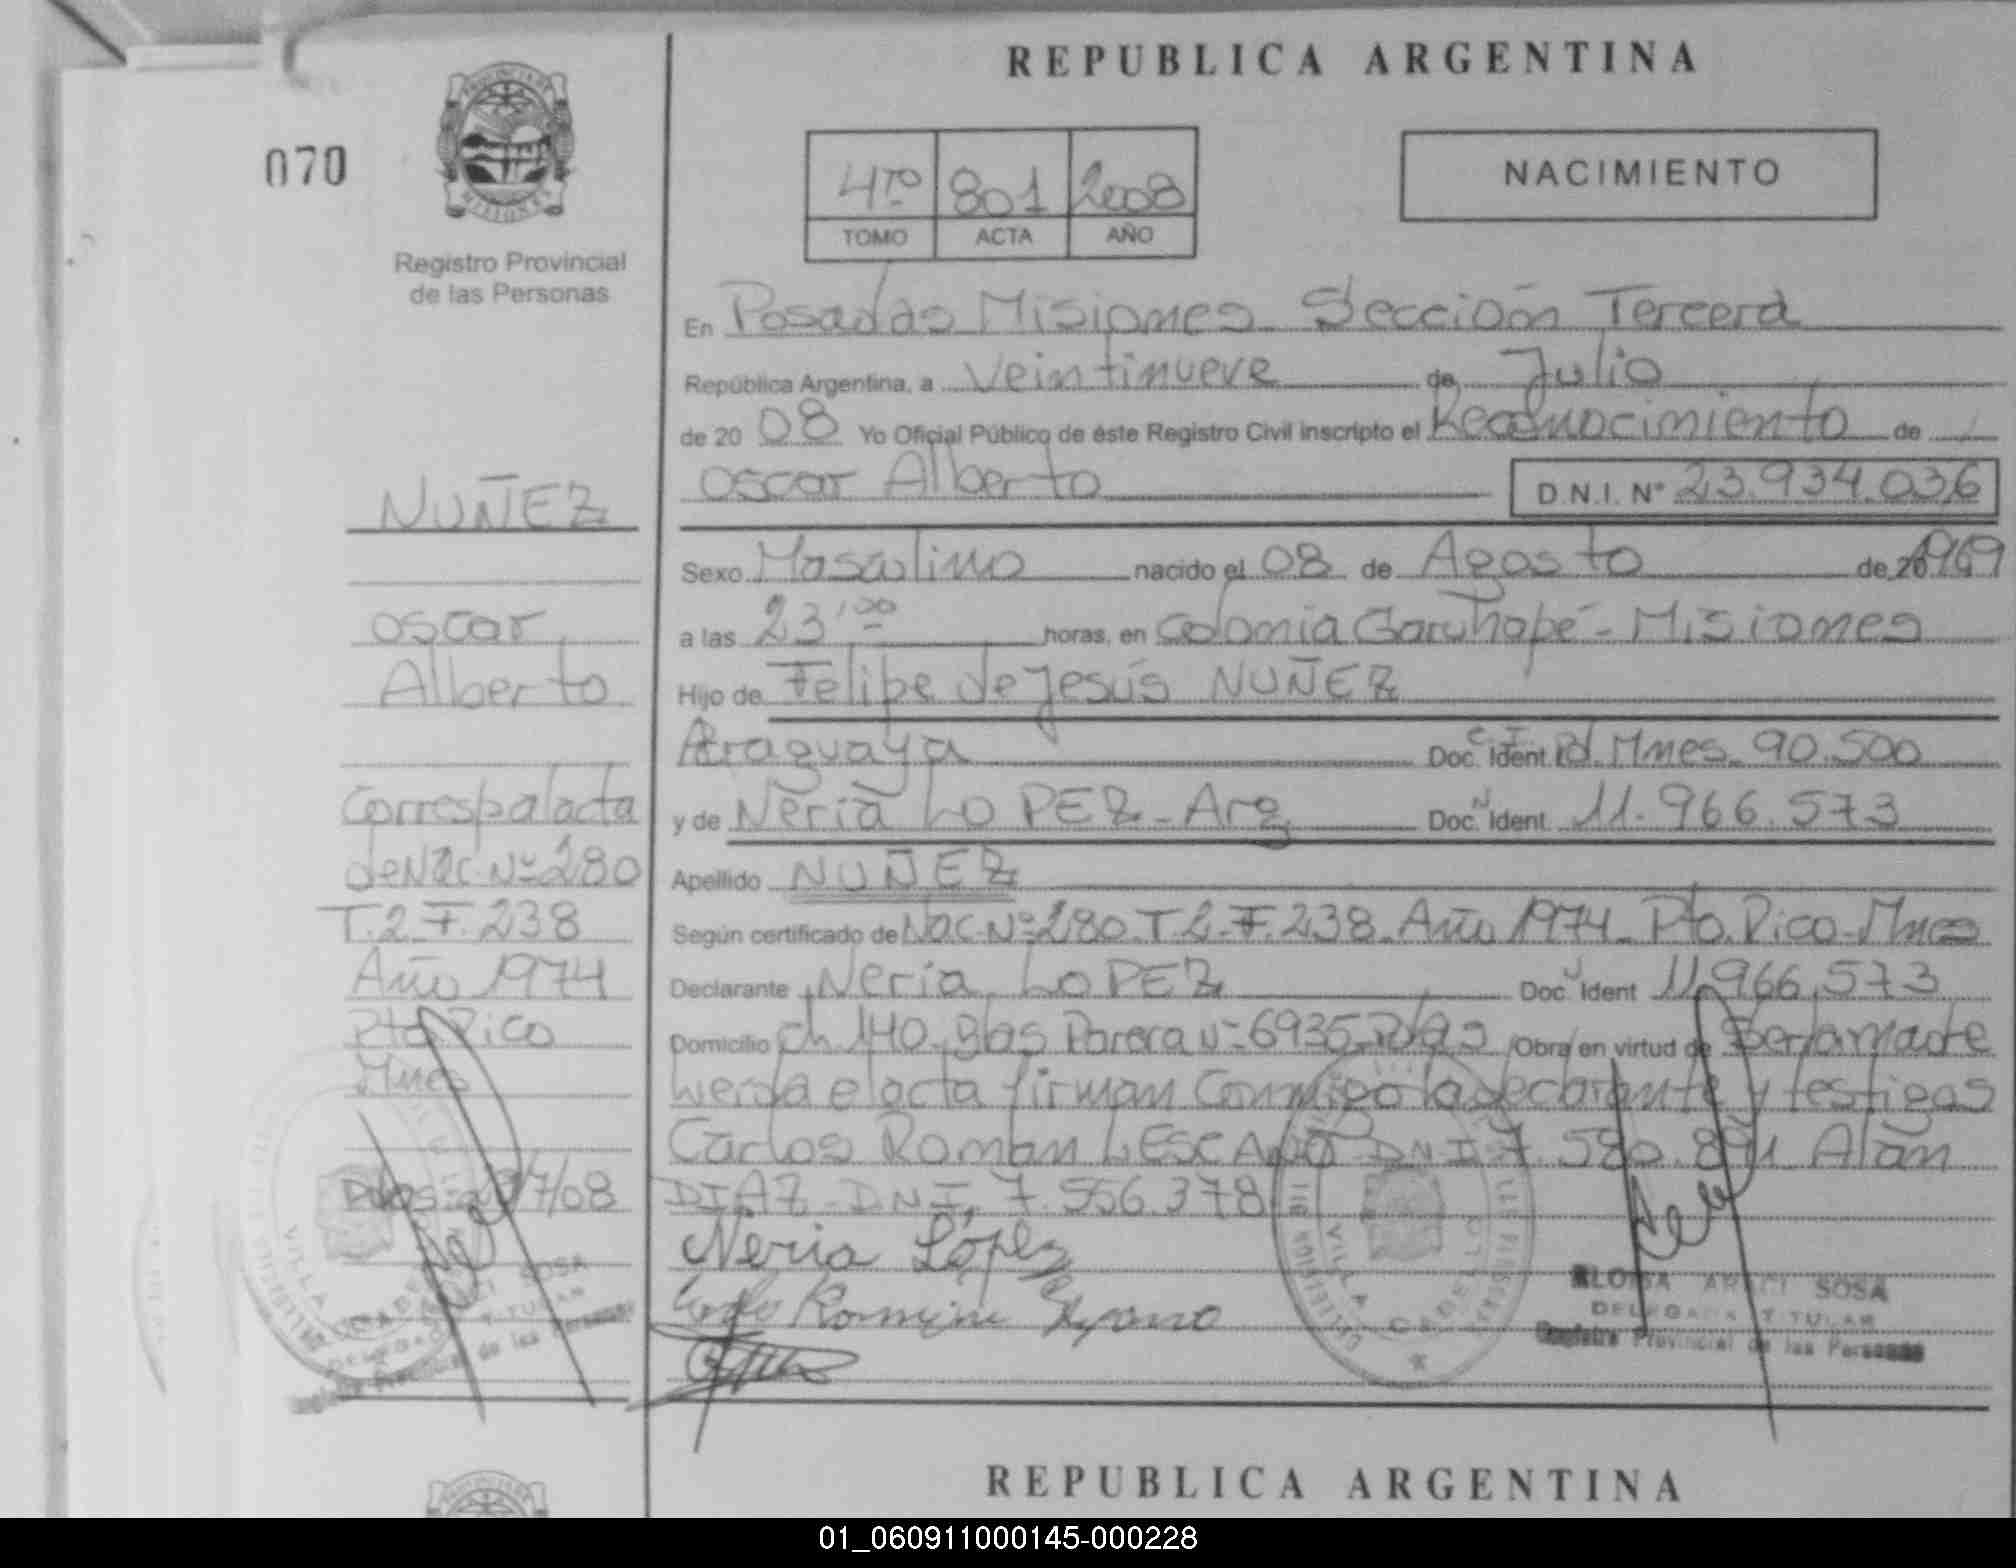 REPUBLICA ARGENTINA
070
PROVINCIA DE
MISIONES
Registro Provincial
de las Personas
4TO 801 2008
TOMO ACTA AÑO
NACIMIENTO
En Posadas Misiones Sección Tercera
República Argentina, a Veintinueve de Julio
de 20 08 Yo Oficial Público de éste Registro Civil inscripto el Reconocimiento de
oscar Alberto D.N.I. Nº 23.934.036
Sexo Masculino nacido el 08 de Agosto de 1969
a las 23,00 horas, en Colonia Garuhapé - Misiones
Hijo de Felipe de Jesús NUÑEZ
Paraguaya Doc. Ident. C.I. Pol Mnes. 90.500
y de Neria LOPEZ - Arg Doc. Ident. 11.966.573
Apellido NUÑEZ
Según certificado de Nac. Nº 280 T 2 F. 238 Año 1974 Pto. Rico - Mnes
Declarante Neria LOPEZ Doc. Ident 11.966.573
Domicilio ch 140 Blas Parera Nº 6935 Pdas Obra en virtud de Ser la madre
Leida el acta firman Conmigo la declarante y testigos
Carlos Roman LESCANO DNI 7.580.891 Alan
DIAZ - DNI. 7.556.378
Neria López
NUÑEZ
oscar
Alberto
Corresp al acta
de Nac. Nº 280
T. 2 F. 238
Año 1974
Pto Rico
Mnes
Pdas 29/7/08
VILLA CABELLO
ELOISA ARACI SOSA
DELEGADA TITULAR
Registro Provincial de las Personas
VILLA CABELLO
SOSA
DELEGADA TITULAR
Provincial de las Personas
REPUBLICA ARGENTINA
01_060911000145-000228